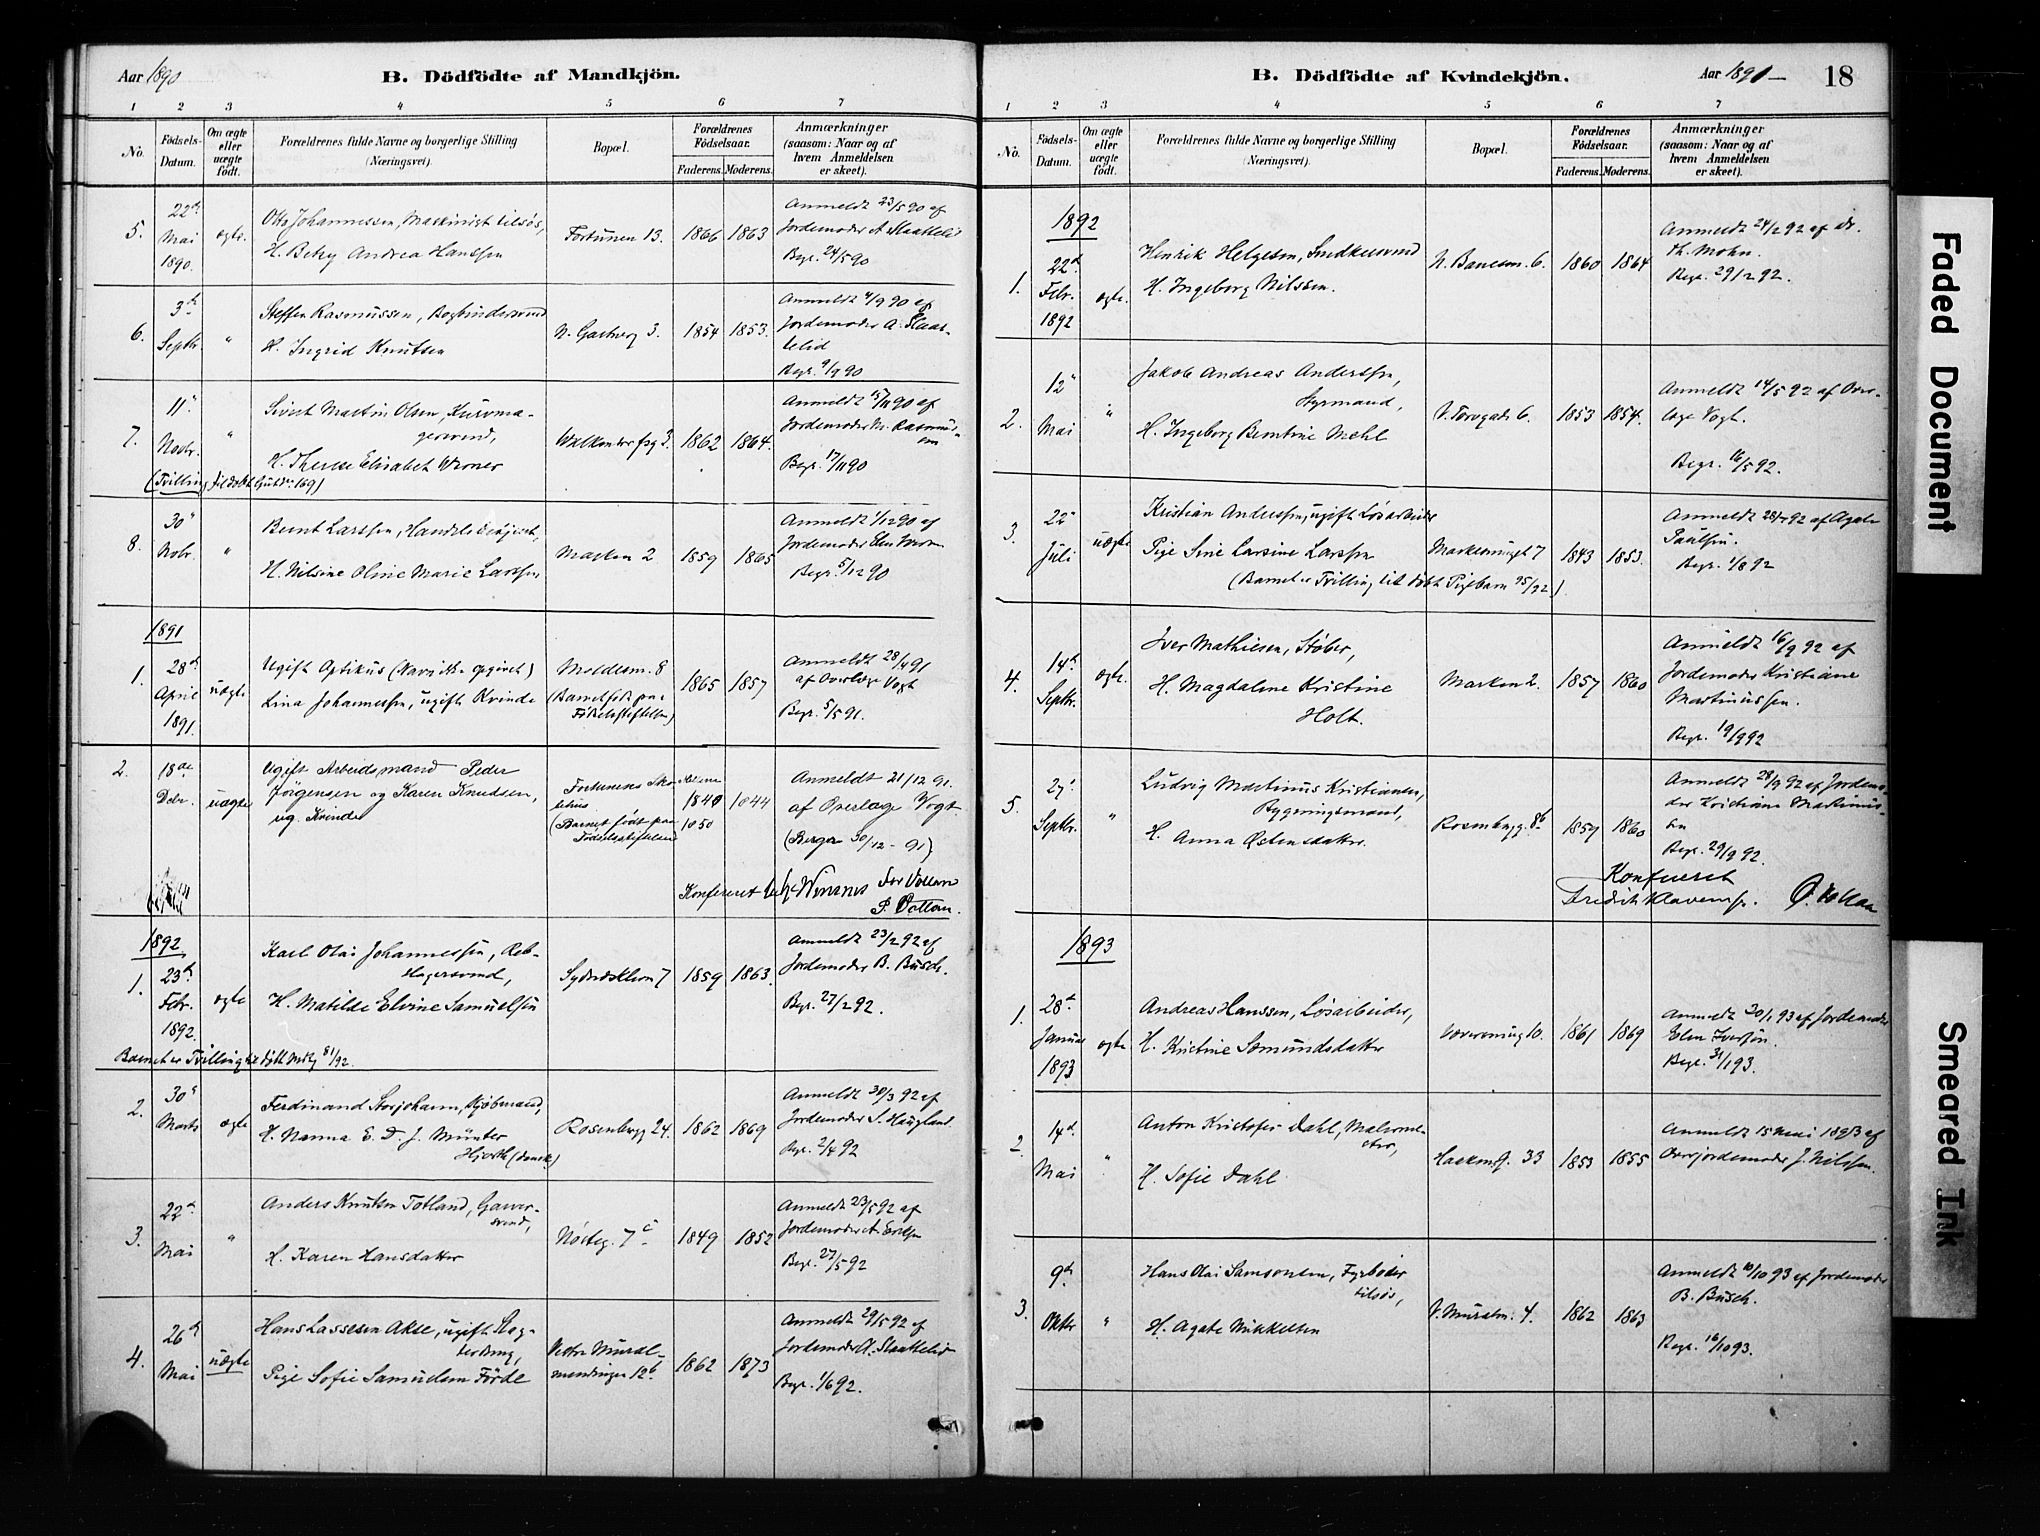 Aar 1890
B. Dödfödte af Mandkjön.
1 2 3 4 5 6 7
No.
Födsels-Datum.
Om ægte eller uægte födt.
Forældrenes fulde Navne og borgerlige Stilling (Næringsvei).
Bopæl.
Forældrenes Födselsaar.
Faderens. Moderens.
Anmærkninger (saasom: Naar og af hvem Anmeldelsen er skeet).
5. 22de Mai 1890. ægte.
Otto Johannessen, Maskinist tilsøs,
H. Betzy Andrea Hanssen
Fortunen 13. 1866 1863
Anmeldt 23/5 90 af
Jordemoder A. Slaattelid
Begr. 24/5 90
6. 3de Septbr. "
Steffen Rasmussen, Bogbindersvend
H. Ingrid Knutsen
N. 3. 1854 1853.
Anmeldt 4/9 90 af
Jordemoder A. Slaat-
telid
Begr. 9/9 90
7. 11" Novbr. "
Sivert Martin Olsen, Kurvma-
gersvend,
H. Therese Elisabet Werner
3. 1862 1864.
(Tvilling, 169)
Anmeldt 15/11 90 af
Jordemoder M. Rasmus-
sen
Begr. 17/11 90
8. 30" Novbr. "
Bernt Larssen, Handelsbetjent,
H. Nilsine Oline Marie Larssen
Marken 2 1859 1865
Anmeldt 1/12 90 af
Jordemoder Elen
Begr. 5/12 90
1891
1. 28de April 1891. uægte
Ugift Optikus (Navn ikke opgivet)
Lina Johannessen, ugift Kvinde
Moldesm. 8
(Barnet født paa
Fødselsstiftelsen)
1865 1857
Anmeldt 28/4 91
af Overlæge Vogt
Begr. 5/5 91.
2. 18de Debr. uægte
Ugift Arbeidsmand Peder
Jörgensen og Karen Knudsen,
ug. Kvinde
Fortunens
(Barnet födt paa
Födselsstiftelsen)
1840 1844
1850
Anmeldt 21/12 91.
af Overlæge Vogt
(Begr. 30/12 - 91)
Konfereret
1892
1. 23de Febr. 1892. ægte
Karl Olai Johannessen, Reb-
slagersvend,
H. Matilde Elvine Samuelsen
7 1859 1863.
Barnet er Tvilling til født 81/92.
Anmeldt 23/2 92 af
Jordemoder B. Busch.
Begr. 27/2 92.
2. 30" Marts ægte
Ferdinand Storjohann, Kjøbmand,
H. Nanna E. D. J. Münter
Hjorth (dansk)
Rosenbergg. 24. 1862 1869
Anmeldt 30/3 92 af
Jordemoder S. Haugland.
Begr. 2/4 92
3. 22de Mai "
Anders Knutsen Totland, Garver-
svend,
H. Karen Hansdatter
Nösteg. 7c 1849 1852
Anmeldt 23/5 92 af
Jordemoder A. Eriksen
Begr. 27/5 92
4. 26de Mai uægte
Hans Lassesen Akse, ugift
Pige Sofie Samuelsen Förde
Vestre Mural-
mendingen 12b 1862 1873
Anmeldt 29/5 92 af
Jordemoder A. Slaattelid
Begr. 1/6 92.
B. Dödfödte af Kvindekjön.
Aar 1891 18
1 2 3 4 5 6 7
No.
Födsels-Datum.
Om ægte eller uægte födt.
Forældrenes fulde Navne og borgerlige Stilling (Næringsvei).
Bopæl.
Forældrenes Födselsaar.
Faderens. Moderens.
Anmærkninger (saasom: Naar og af hvem Anmeldelsen er skeet).
1892
1. 22de Febr. 1892 ægte.
Henrik Helgesen, Snedkersvend
H. Ingeborg Nilssen.
N. 6. 1860 1864
Anmeldt 24/2 92 af dr.
Th. Mohn.
Begr. 29/2 92.
2. 12" Mai "
Jakob Andreas Anderssen,
Styrmand,
H. Ingeborg Berntine Mehl
V. Torvgade 6. 1853 1854.
Anmeldt 14/5 92 af Over-
læge Vogt.
Begr. 16/5 92.
3. 22de Juli uægte
Kristian Anderssen, ugift Løsarbeider
Pige Sine Larsine Larssen
(Barnet er Tvilling til født Pigebarn 95/92.)
7 1843 1853.
Anmeldt 28/7 92 af Agate
Paulsen.
Begr. 1/8 92
4. 14de Septbr. ægte.
Iver Mathiesen, Støber,
H. Magdalene Kristine
Holt.
Marken 2. 1857 1860
Anmeldt 16/9 92 af
Jordemoder Kristiane
Martinussen.
Begr. 19/9 92
5. 27de Septbr. "
Ludvig Martinus Kristiansen,
Bygningsmand,
H. Anna Østensdatter.
Rosenbergg. 8b 1859 1860
Anmeldt 28/9 92 af Jordemo-
der Kristiane Martinus-
sen
Begr. 29/9 92.
Konfereret
1893
1. 28de Januar 1893 ægte
Andreas Hanssen, Løsarbeider,
H. Kristine Somundsdatter
10. 1861 1869
Anmeldt 30/1 93 af Jordemoder
Elen Iversen.
Begr. 31/1 93.
2. 14de Mai "
Anton Kristofer Dahl, Malerme-
ster,
H. Sofie Dahl
33 1853 1855
Anmeldt 15 Mai 1893 af
Overjordemoder J. Nilssen.
3. 9de Oktbr "
Hans Olai Samsonsen, Fyrbøder
tilsøs,
H. Agate Mikkelsen
V. Muralm. 4. 1862 1863
Anmeldt 10/10 93 af Jordemoder
B. Busch.
Begr. 16/10 93.
Faded Document
Smeared Ink